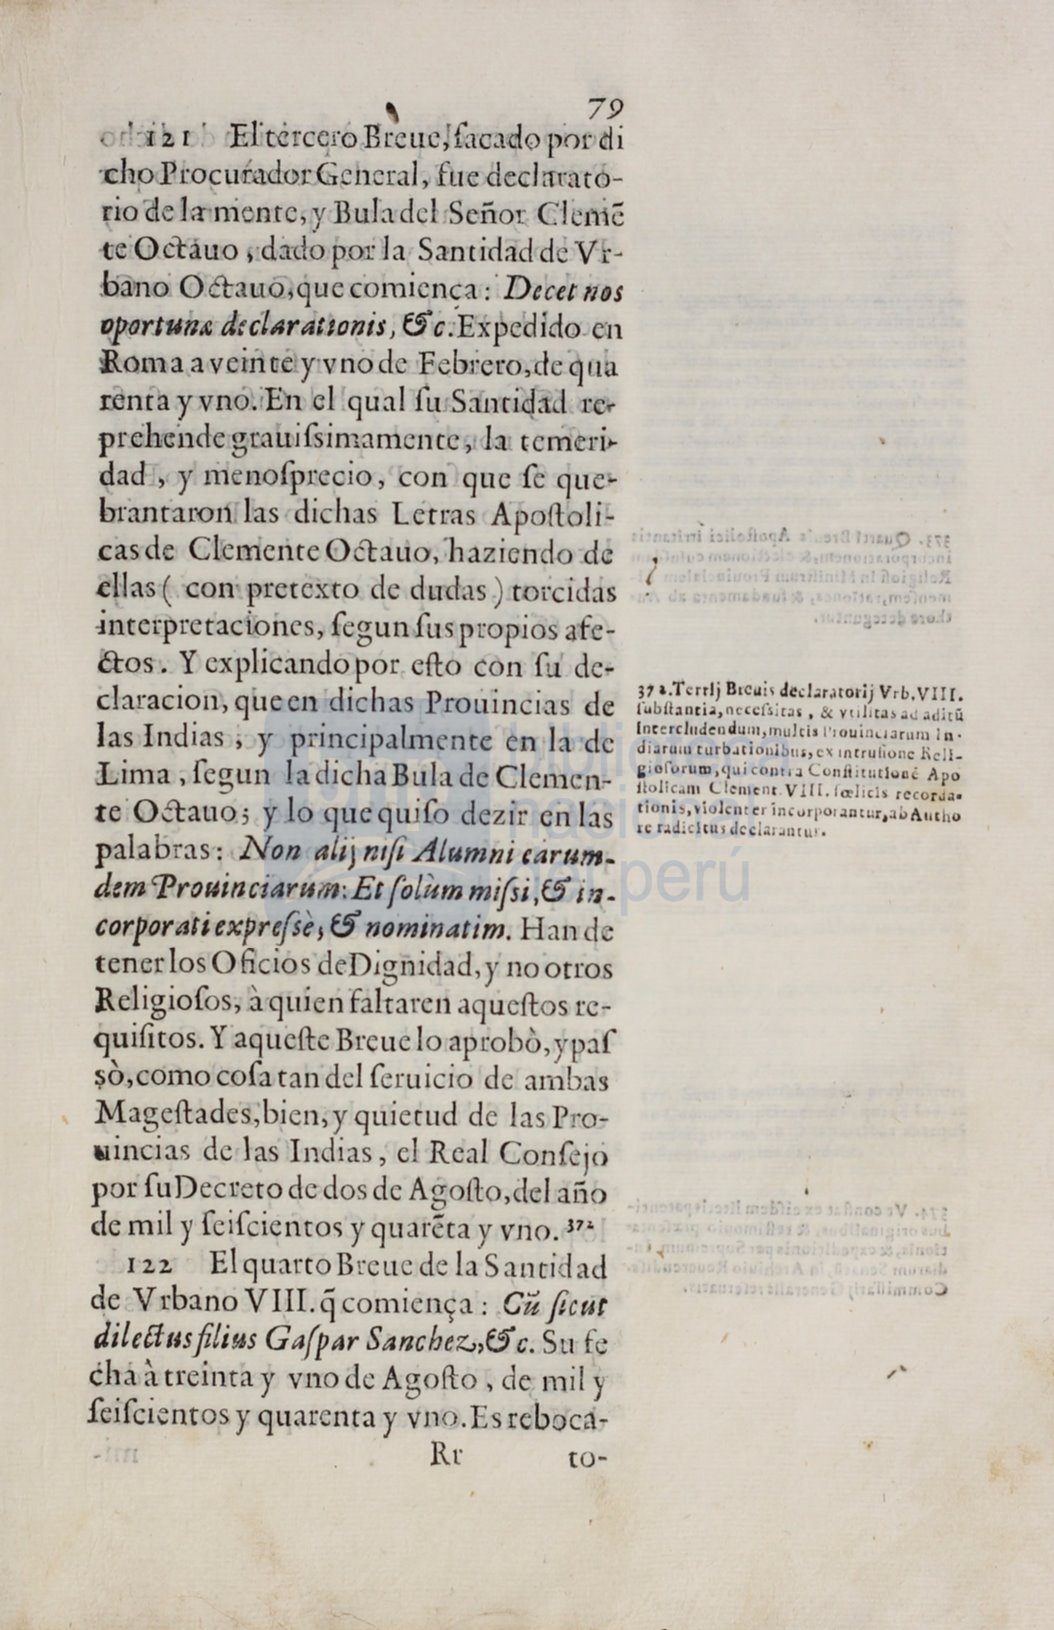 79
121 El tercero Breue, ſacado por di
cho Procurador General, fue declarato-
rio de la mente, y Bula del Señor Clemẽ
te Octauo, dado por la Santidad de Vr-
bano Octauo, que comiença: Decet nos
oportunæ declarationis, & c. Expedido en
Roma a veinte y vno de Febrero, de qua
renta y vno. En el qual ſu Santidad re-
prehende grauiſsimamente, la temeri-
dad, y menoſprecio, con que ſe que-
brantaron las dichas Letras Apoſtoli-
cas de Clemente Octauo, haziendo de
ellas ( con pretexto de dudas ) torcidas
interpretaciones, ſegun ſus propios afe-
ctos. Y explicando por eſto con ſu de-
claracion, que en dichas Prouincias de
las Indias, y principalmente en la de
Lima, ſegun la dicha Bula de Clemen-
te Octauo; y lo que quiſo dezir en las
palabras: Non alij niſi Alumni earum-
dem Prouinciarum: Et ſolùm miſsi, & in-
corporati expreſsè, & nominatim. Han de
tener los Oficios de Dignidad, y no otros
Religioſos, à quien faltaren aqueſtos re-
quiſitos. Y aqueſte Breue lo aprobò, y paſ
sò, como coſa tan del ſeruicio de ambas
Mageſtades, bien, y quietud de las Pro-
uincias de las Indias, el Real Conſejo
por ſu Decreto de dos de Agoſto, del año
de mil y ſeiſcientos y quarẽta y vno. 372
122 El quarto Breue de la Santidad
de Vrbano VIII. q̃ comiença: Cũ ſicut
dilectus filius Gaſpar Sanchez, & c. Su fe
cha à treinta y vno de Agoſto, de mil y
ſeiſcientos y quarenta y vno. Es reboca-
Rr to-
372. Tertij Breuis declaratorij Vrb. VIII.
ſubſtantia, neceſsitas, & vtilitas ad aditũ
Intercludendum, multis Prouinciarum In-
diarum turbationibus, ex intruſione Reli-
gioſorum, qui contra Conſtitutionẽ Apo
ſtolicam Clement. VIII. fœlicis recorda-
tionis, violenter incorporantur, ab Autho
re radicitus declarantur.